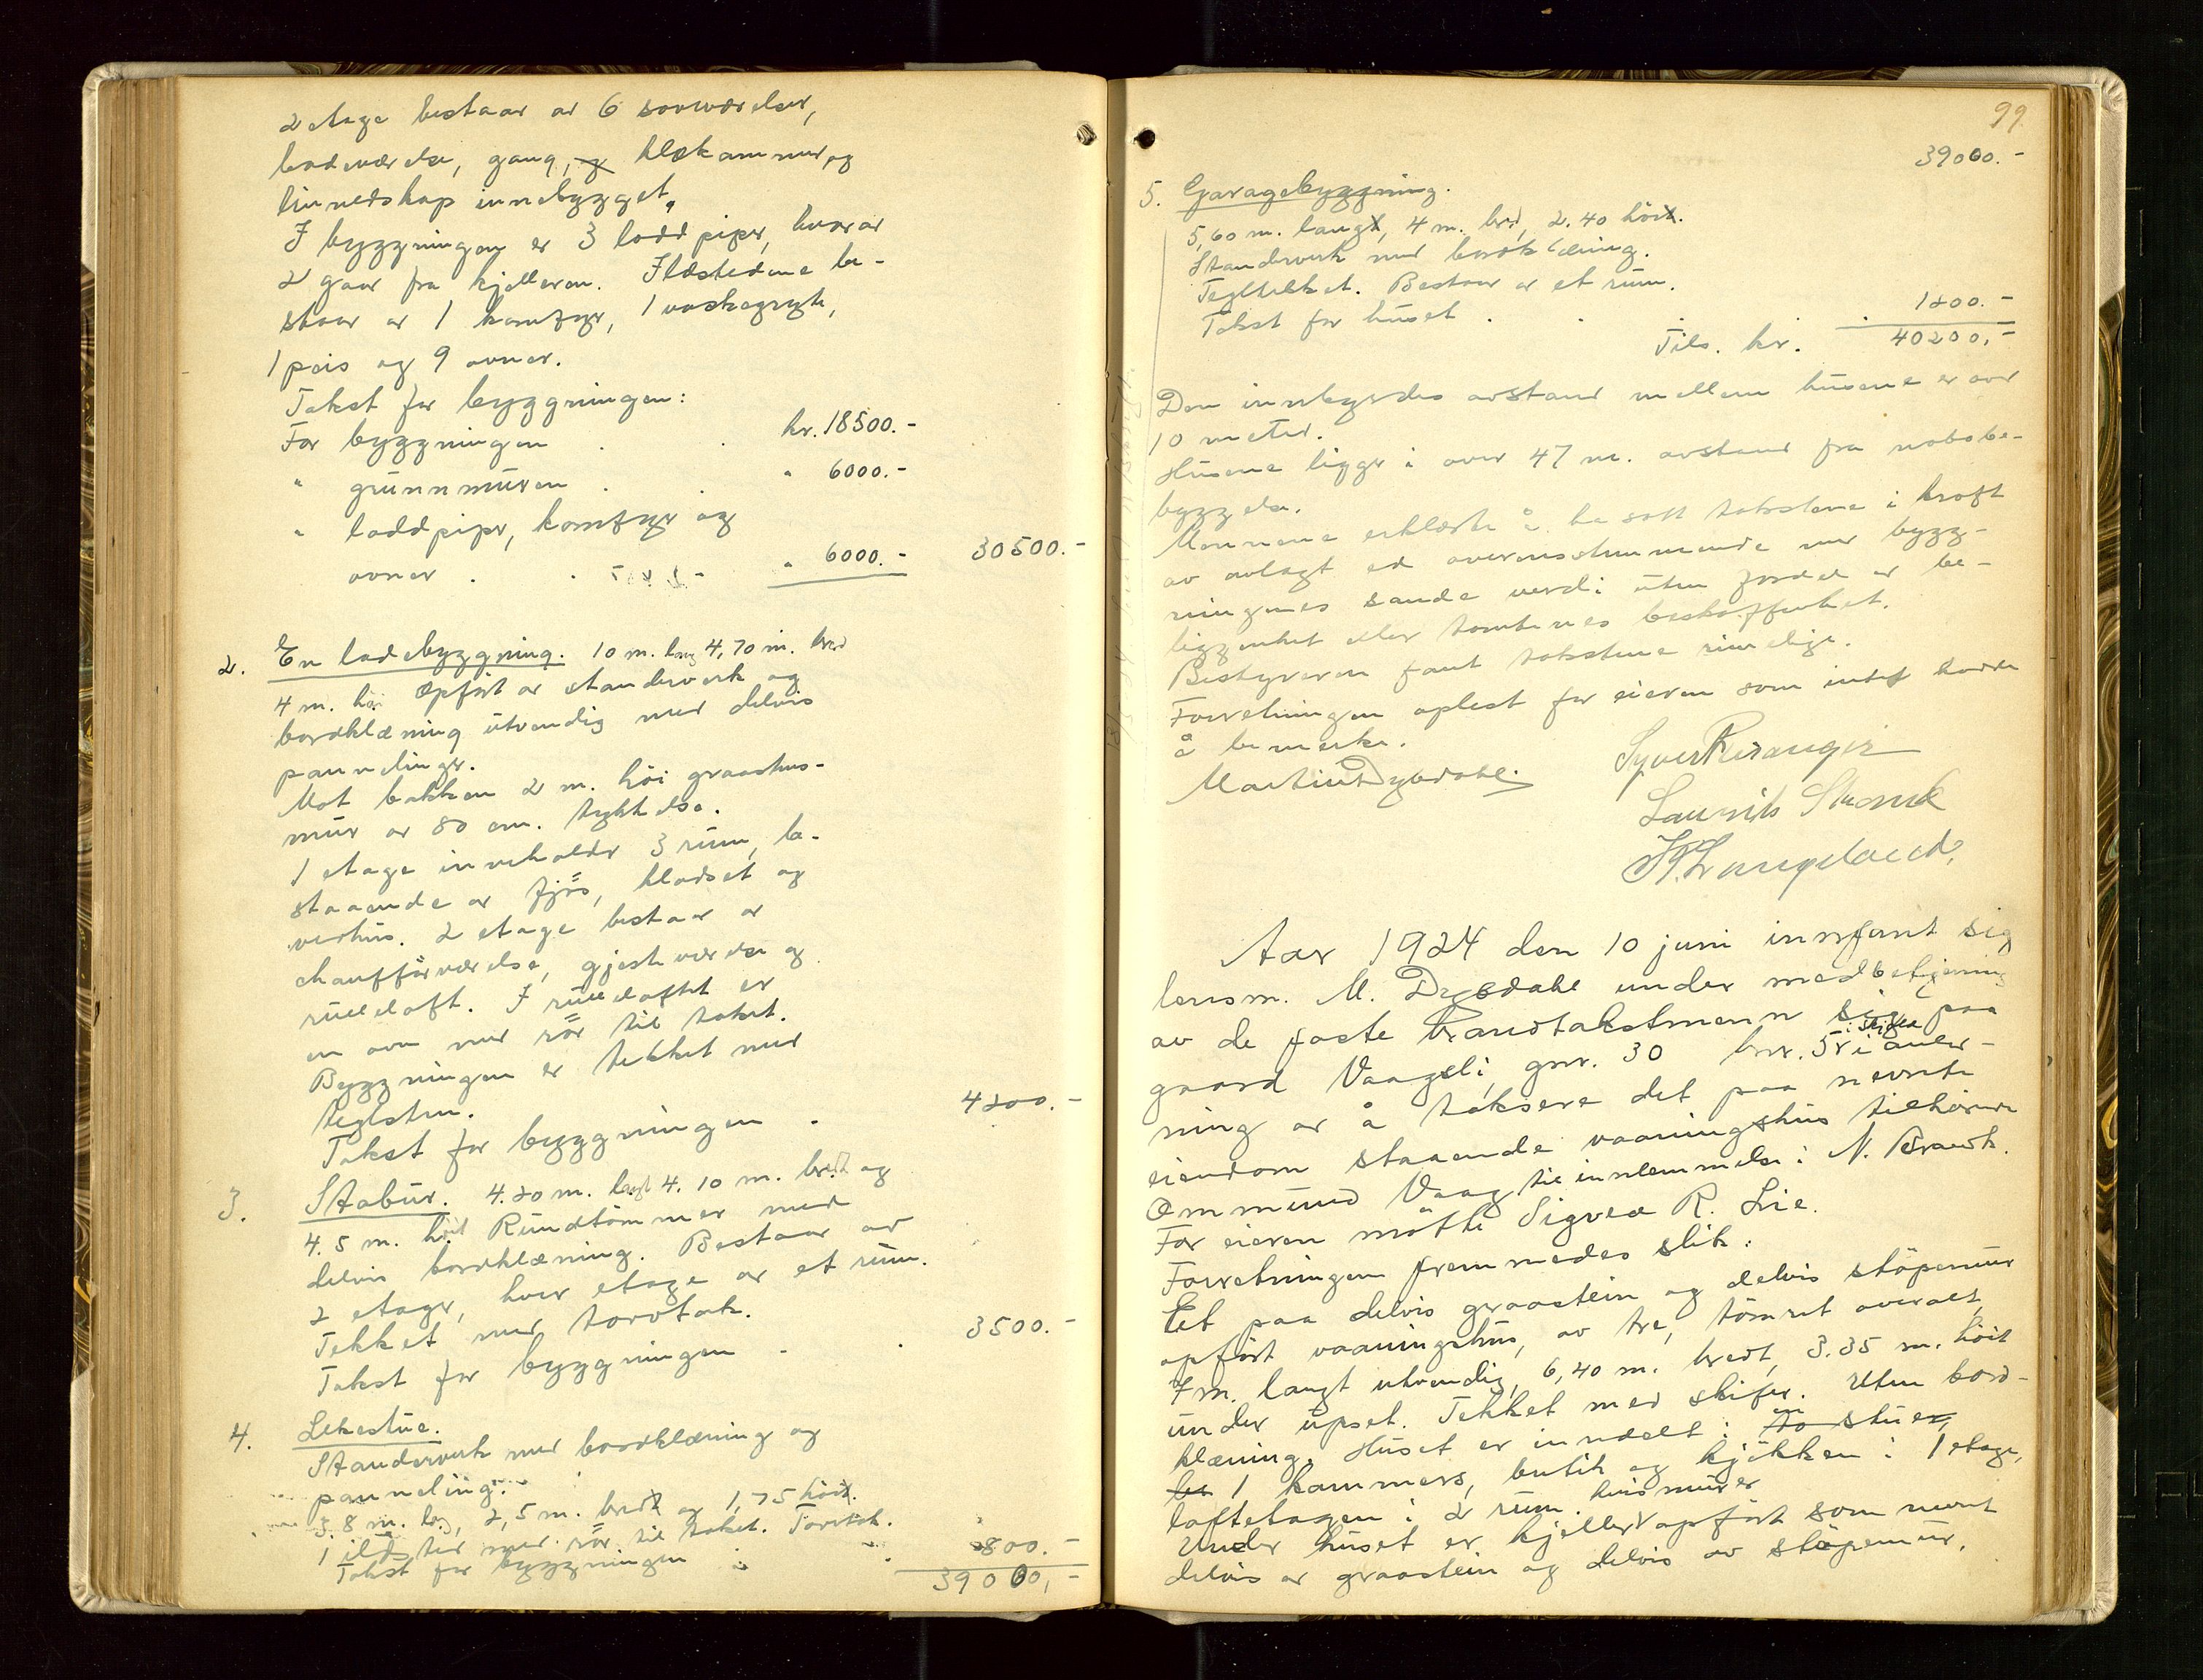 2 etage bestaar av 6 soveværelser,
badeværelse, gang, og klækammer, og
linnedskap innebygget.
I bygningen er 3 loddpiper, hvorav
2 gaar fra kjelleren. Ildstedene be-
staar av 1 komfyr, 1 vaskegryte,
1 peis og 9 ovner.
Takst for byggningen:
For byggningen . . kr. 18500.-
" grunnmuren . . " 6000.-
" loddpiper, komfyr og
ovner . . " 6000.- 30500.-
2. En ladebyggning. 10 m. lang 4,70 m. bred
4 m. høi Opført av standerverk og
bordklæning utvendig med delvis
pannelinger.
Mot bakken 2 m. høi graastens-
mur av 80 cm. tykkelse.
1 etage inneholder 3 rum, be-
staaende av fjøs, kladset og
vedhus. 2 etage bestaar av
chaufførværelse, gjesteværelse og
rulleloft. I rulleloftet er
en ovn med rør til taket.
Byggningen er tekket med
teglsten.
Takst for byggningen . 4200.-
3. Stabur. 4.20 m. langt 4.10 m. bredt og
4.5 m. høit Rundtømmer med
delvis bordklæning. Bestaar av
2 etager, hver etage av et rum.
Tekket med torvtak.
Takst for byggningen . . 3500.-
4. Lekestue.
Standerverk med bordklæning og
panneling.
3.8 m. lang, 2,5 m. bredt og 1,75 høit.
1 ildsted med rør til taket. Torvtak.
Takst for byggningen 800.-
39000,-
99.
39000.-
5. Garagebyggning.
5,60 m. langt, 4 m. bred, 2.40 høit.
Standerverk med bordklæning.
Tegltekket. Bestaar av et rum.
Takst for huset . . . 1200.-
Tils. kr. 40200,-
Den innbyrdes avstand mellem husene er over
10 meter.
Husene ligger i over 47 m. avstand fra nabobe-
byggelse.
Mennene erklærte å ha satt takstene i kraft
av avlagt ed overensstemmende med bygg-
ningenes sande verdi uten fordel av be-
liggenhet eller tomtenes beskaffenhet.
Bestyreren fant takstene rimelige.
Forretningen oplest for eieren som intet hadde
å bemerke.
Martin Dybdahl. Syvert
Laurits
Aar 1924 den 10 juni innfant sig
lensm. M. Dybdahl under medbetjening
av de faste brandtakstmenn sig paa
gaard Vaageli, gnr. 30 bnr. 5 i anled-
ning av å taksere det paa nevnte
eiendom staaende vaaningshus tilhørende
Ommund Vaag til innlemmelse i N. Brandk.
For eieren møtte Sigvea R. Lie.
Forretningen fremmedes slik:
Et paa delvis graastein og delvis støpemur
opført vaaningshus, av tre, tømret overalt,
7 m. langt utvendig, 6,40 m. bredt, 3.35 m. høit
under upset. Tekket med skifer. Uten bord-
klæning. Huset er inndelt i to stuer,
1 kammers, butik og kjøkken i 1 etage,
loftetagen i 2 rum.
Under huset er kjeller hvis murer opført som nevnt
delvis av graastein og delvis av støpemur.